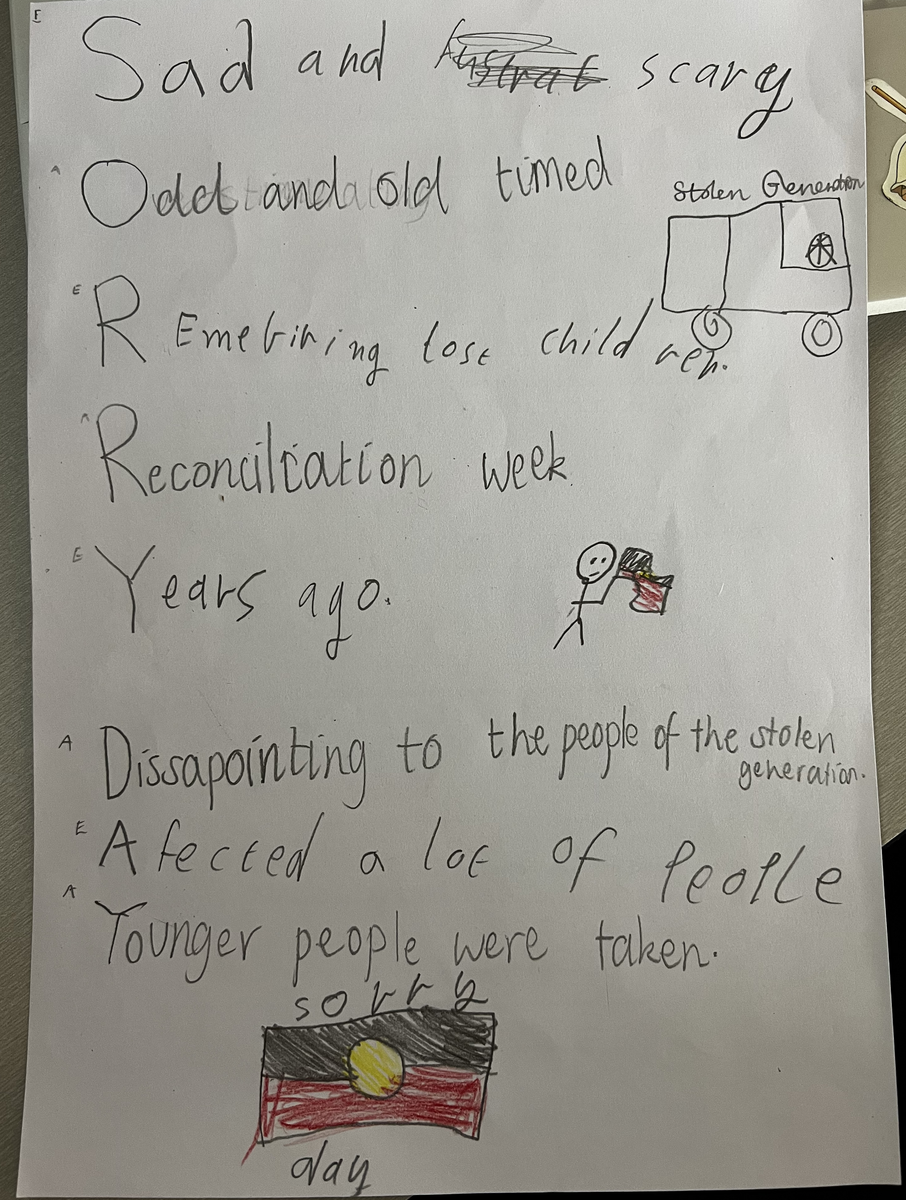 E
Sad and scary
A
Odd and old timed
Stolen Generation
E
R Emebriring lose children.
A
Reconciliation week
E
Years ago.
A
Dissapointing to the people of the stolen
generation.
E
Afected a lot of People
A
Younger people were taken.
sorry
day